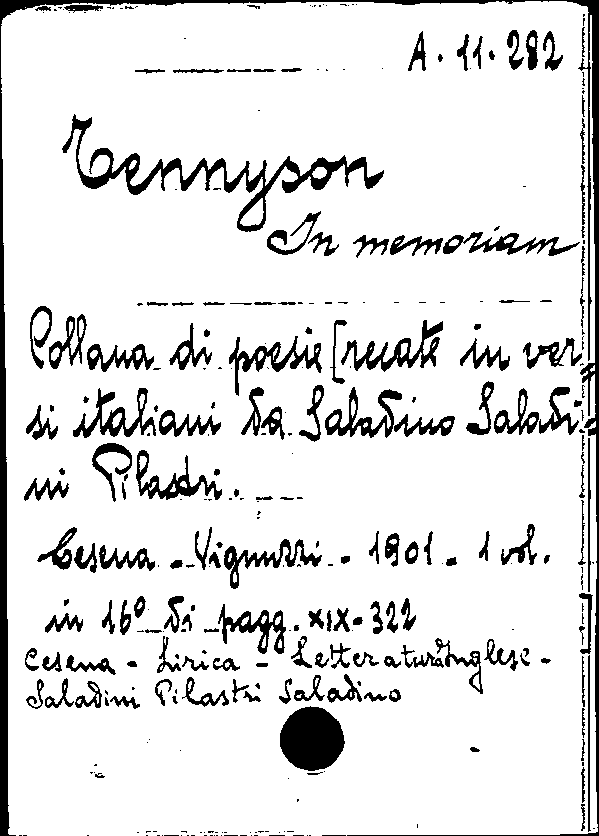 A. 11. 282
Tennyson
In memoriam
Collana di poesie [recate in ver=
si italiani da Saladino Saladi=
ni Pilastri.
Cesena - Vignuzzi - 1901 - 1 vol.
in 16º di pagg. XIX-322
Cesena - Lirica - Letteratura Inglese -
Saladini Pilastri Saladino